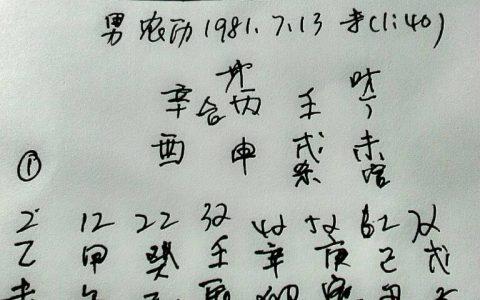 男 农历 1981.7.13 未(1:40)
辛 合 丙 壬 丁
酉 申 戌 未
杀 官
①
2 12 22 32 42 52 62 72
乙 甲 癸 壬 辛 庚 己 戊